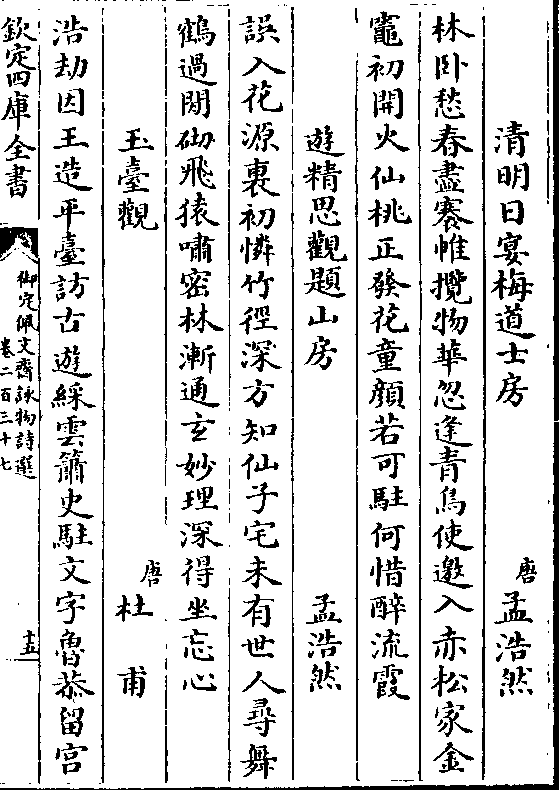 清明日宴梅道士房 唐 孟浩然
林卧愁春盡褰帷攬物華忽逢青鳥使邀入赤松家金
竈初開火仙桃正發花童顔若可駐何惜醉流霞
遊精思觀題山房 孟浩然
誤入花源裏初憐竹徑深方知仙子宅未有世人尋舞
鶴過閒砌飛猿嘯密林漸通玄妙理深得坐忘心
玉臺觀 唐 杜甫
浩劫因王造平臺訪古遊綵雲簫史駐文字魯恭留宫
欽定四庫全書
御定佩文齋詠物詩選
卷二百三十七
十五